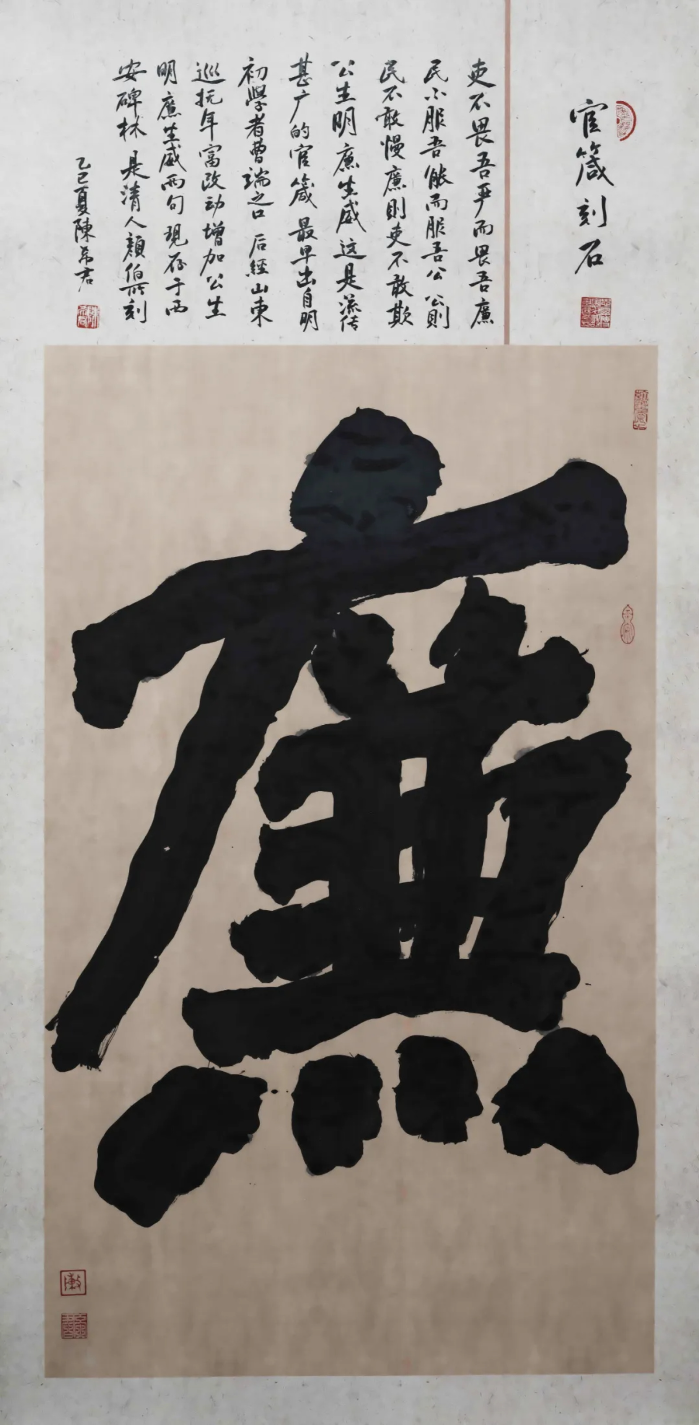 官箴刻石
吏不畏吾严而畏吾廉
民不服吾能而服吾公公則
民不敢慢廉則吏不敢欺
公生明廉生威这是流传
甚广的官箴最早出自明
初學者曹端之口后經山東
巡抚年富改动增加公生
明廉生威两句现存于西
安碑林是清人顏伯所刻
乙巳夏陳希君
廉